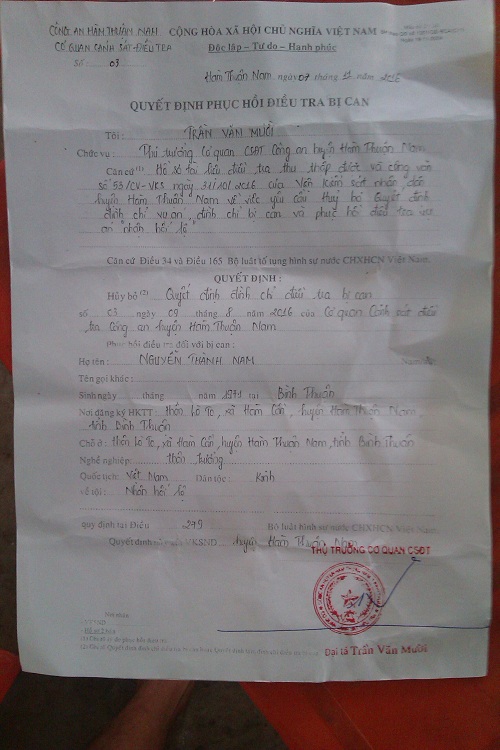 CÔNG AN HÀM THUẬN NAM
CƠ QUAN CẢNH SÁT ĐIỀU TRA
Số: 03
CỘNG HÒA XÃ HỘI CHỦ NGHĨA VIỆT NAM
Độc lập – Tự do – Hạnh phúc
Hàm Thuận Nam, ngày 07 tháng 11 năm 2016
QUYẾT ĐỊNH PHỤC HỒI ĐIỀU TRA BỊ CAN
Tôi: TRẦN VĂN MƯỜI
Chức vụ: Thủ trưởng Cơ quan CSĐT Công an huyện Hàm Thuận Nam
Căn cứ (1) Hồ sơ tài liệu điều tra thu thập được và công văn
số 53/CV-VKS ngày 31/10/2016 của Viện Kiểm sát nhân dân
huyện Hàm Thuận Nam về việc yêu cầu huỷ bỏ Quyết định
đình chỉ vụ án, đình chỉ bị can và phục hồi điều tra vụ
án "nhận hối lộ"
Căn cứ Điều 34 và Điều 165 Bộ luật tố tụng hình sự nước CHXHCN Việt Nam.
QUYẾT ĐỊNH:
Hủy bỏ (2) Quyết định đình chỉ điều tra bị can
số 03 ngày 09 tháng 8 năm 2016 của Cơ quan Cảnh sát điều
tra Công an huyện Hàm Thuận Nam
Phục hồi điều tra đối với bị can:
Họ tên: NGUYỄN THÀNH NAM
Tên gọi khác:
Sinh ngày tháng năm 1971 tại Bình Thuận
Nơi đăng ký HKTT: thôn Lò To, xã Hàm Cần, huyện Hàm Thuận Nam,
tỉnh Bình Thuận
Chỗ ở: thôn Lò To, xã Hàm Cần, huyện Hàm Thuận Nam, tỉnh Bình Thuận
Nghề nghiệp: thôn trưởng
Quốc tịch: Việt Nam Dân tộc: Kinh
về tội: Nhận hối lộ
quy định tại Điều 279 Bộ luật hình sự nước CHXHCN Việt Nam.
Quyết định VKSND huyện Hàm Thuận Nam
THỦ TRƯỞNG CƠ QUAN CSĐT
Đại tá Trần Văn Mười
Nơi nhận: